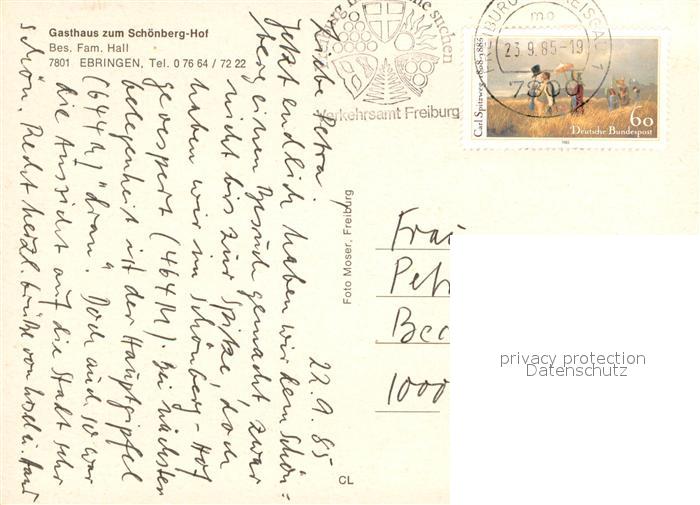 Gasthaus zum Schönberg-Hof
Bes. Fam. Hall
7801 EBRINGEN, Tel. 0 76 64 / 72 22
22.9.85
Liebe Petra.
Jetzt endlich haben wir dem Schön=
berg einen Besuch gemacht zwar
nicht bis zur Spitze, doch
haben wir im Schönberg-Hof
gevespert (464M). Bei nächsten
Gelegenheit ist der Hauptgipfel
(644M) "dran". Doch auch so war
die Aussicht auf die Stadt sehr
schön. Recht herzl. Grüße von
Foto Moser, Freiburg
CL
suchen
Verkehrsamt Freiburg
23.9.85-19
7800
Carl Spitzweg 1808-1885
60
Deutsche Bundespost
1985
Frau
Pet
Bec
1000
privacy protection
Datenschutz